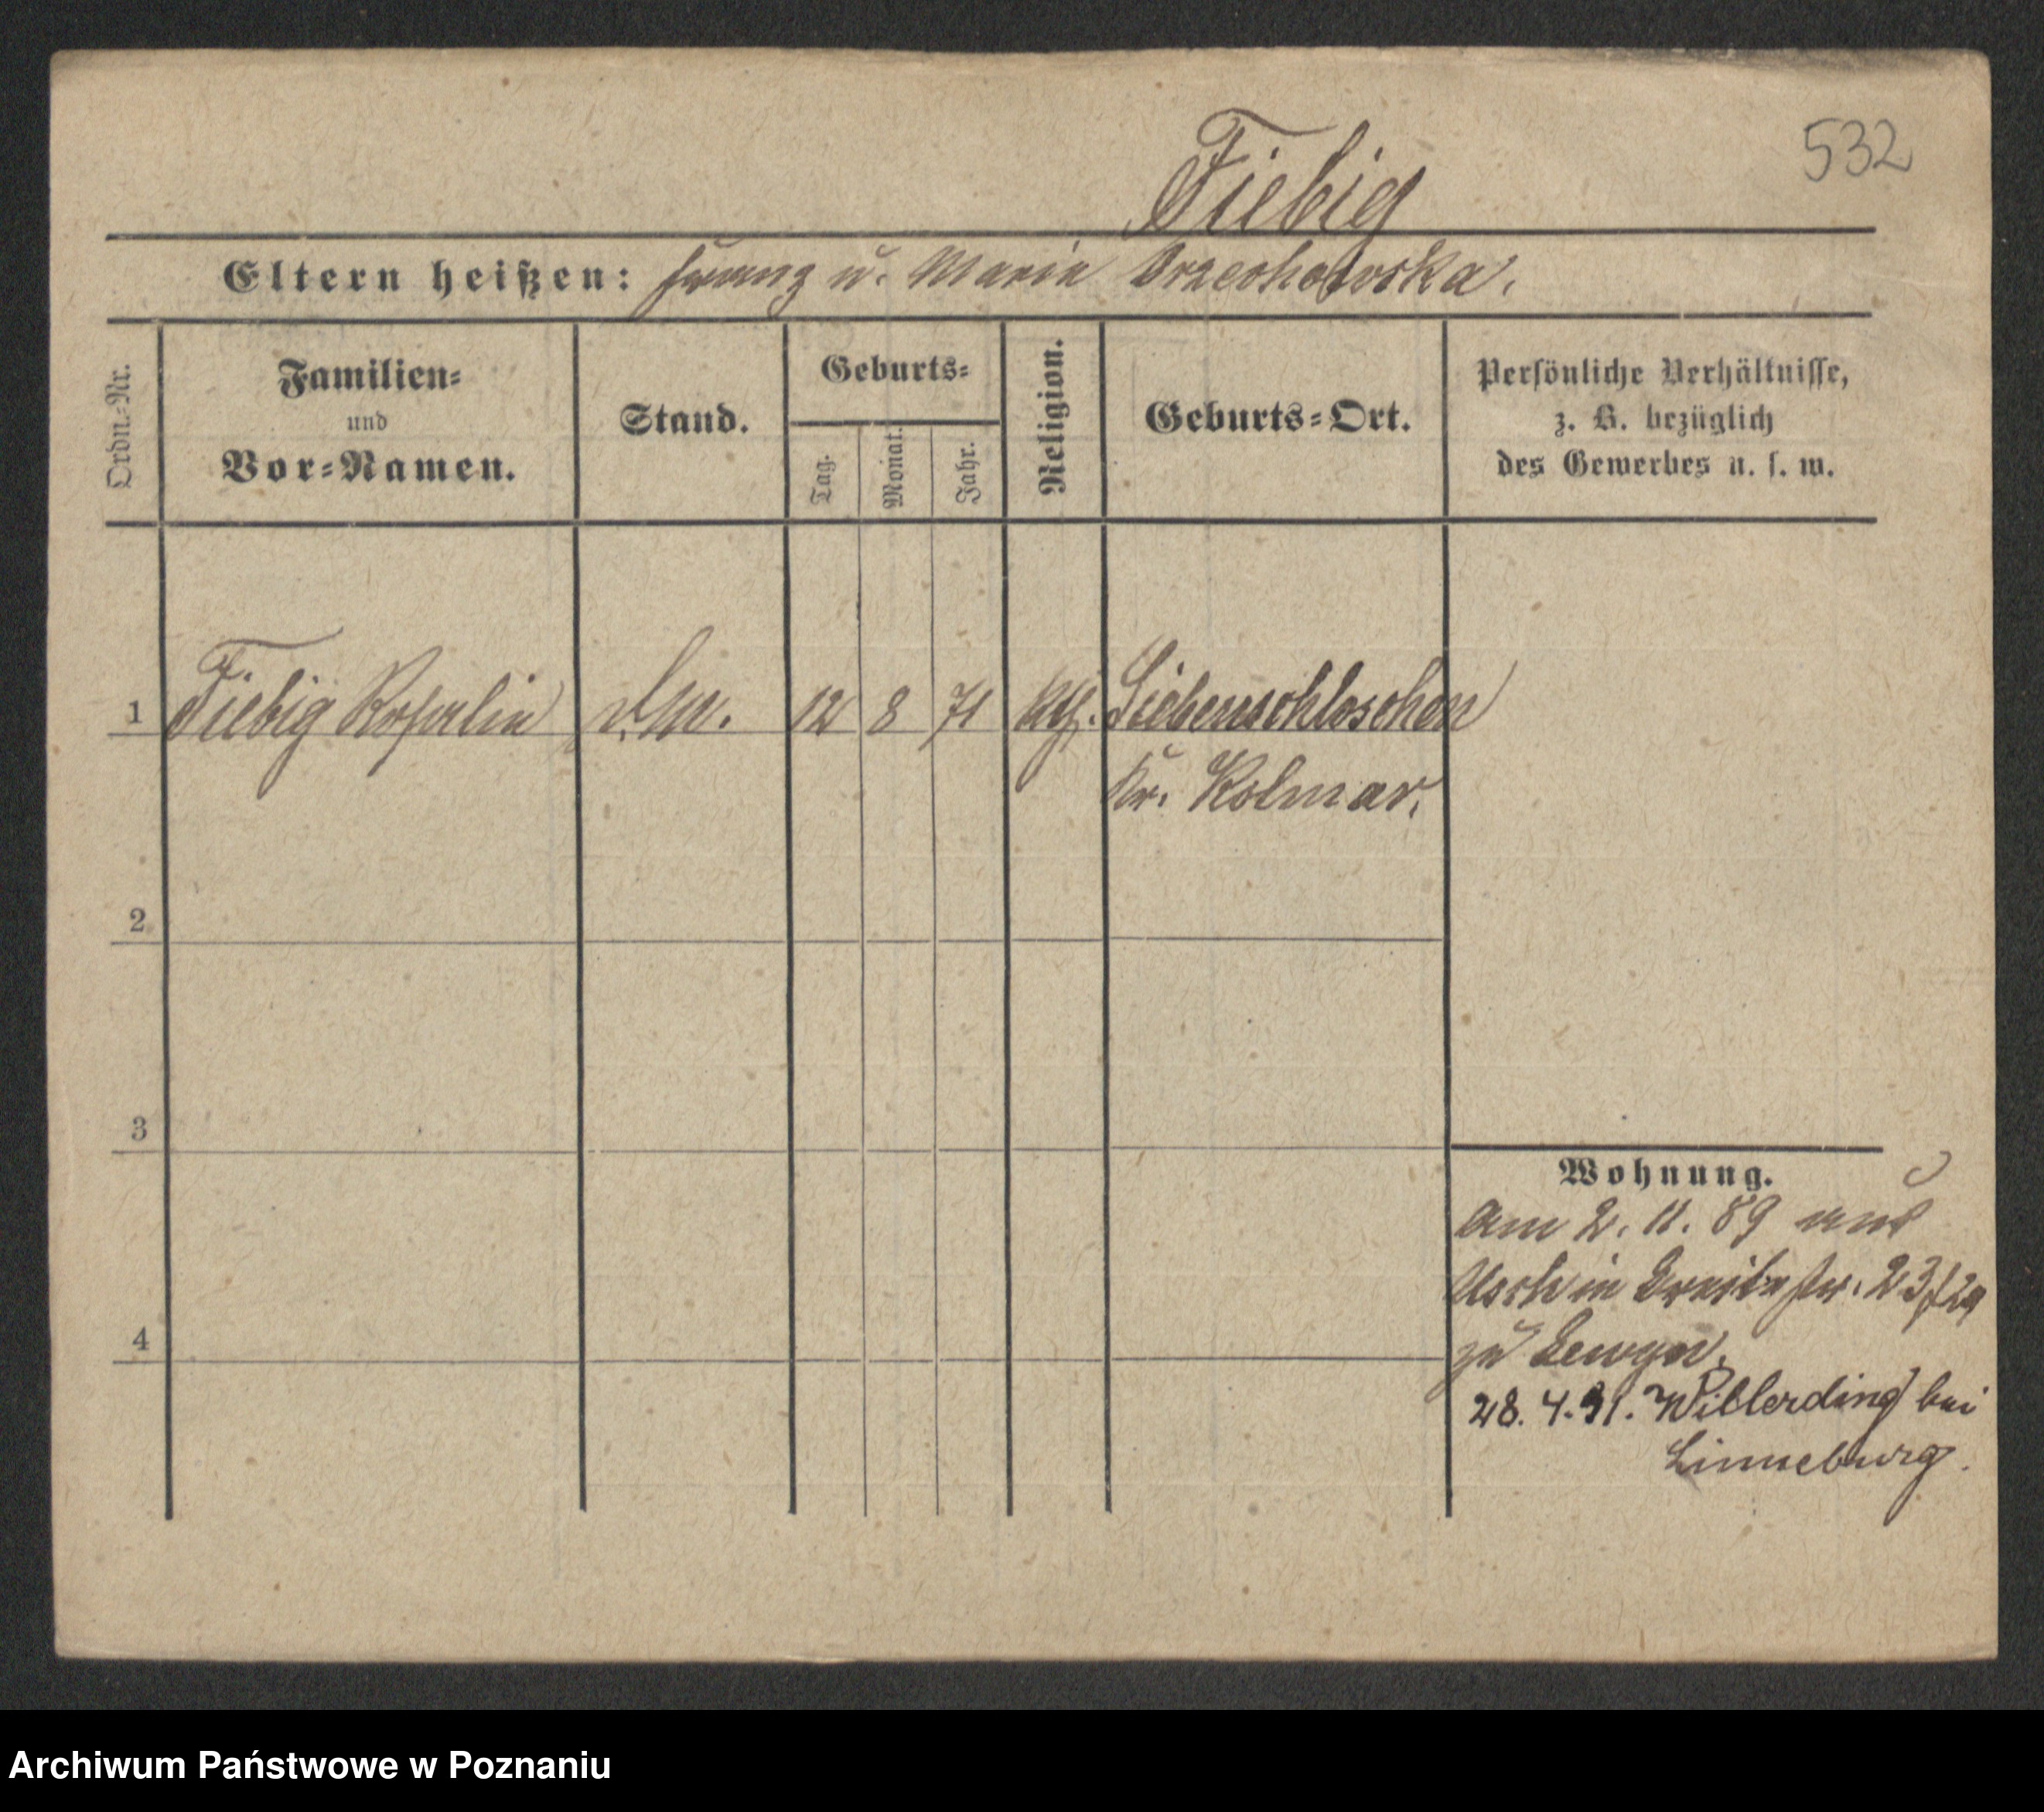 532
Fiebig
Eltern heißen: Franz u. Maria Orzechowska.
Ordn.-Nr.
Familien-
und
Vor-Namen.
Stand.
Geburts-
Tag.
Monat.
Jahr.
Religion.
Geburts-Ort.
Persönliche Verhältnisse,
z. B. bezüglich
des Gewerbes u. s. w.
1 Fiebig Rosalie 12 8 71 kth. Siebenschloschen
Kr. Kolmar.
2
3
4
Wohnung.
Am 2. 11. 89 aus
Usch in Breitestr. 23/29
zu
28. 4. 91. Willerding bei
Linneburg.
Archiwum Państwowe w Poznaniu